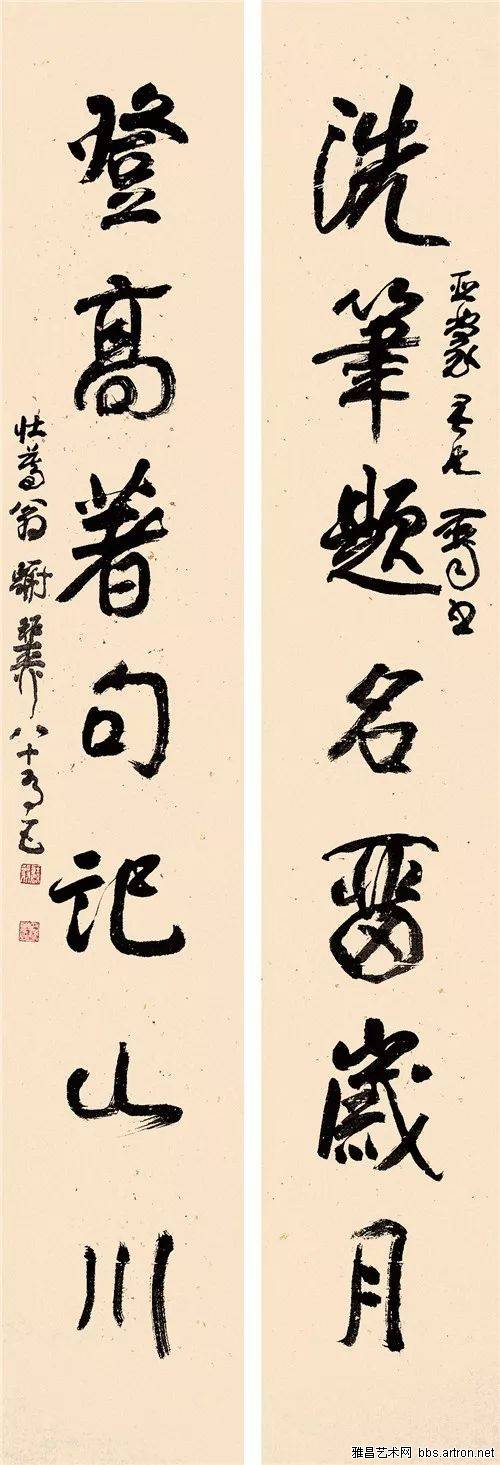 洗筆題名畱歲月
亞蒙
登高著句記山川
壯暮翁謝稚柳八十有五
雅昌艺术网 bbs.artron.net